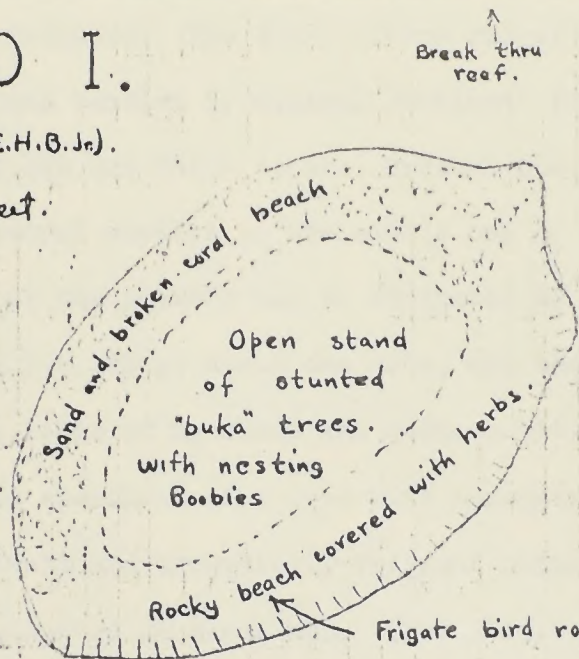 D I.
Break thru
reef.
E.H.B.Jr).
eet.
Sand and broken coral beach
Open stand
of stunted
"buka" trees.
with nesting
Boobies
Rocky beach covered with herbs.
Frigate bird ro